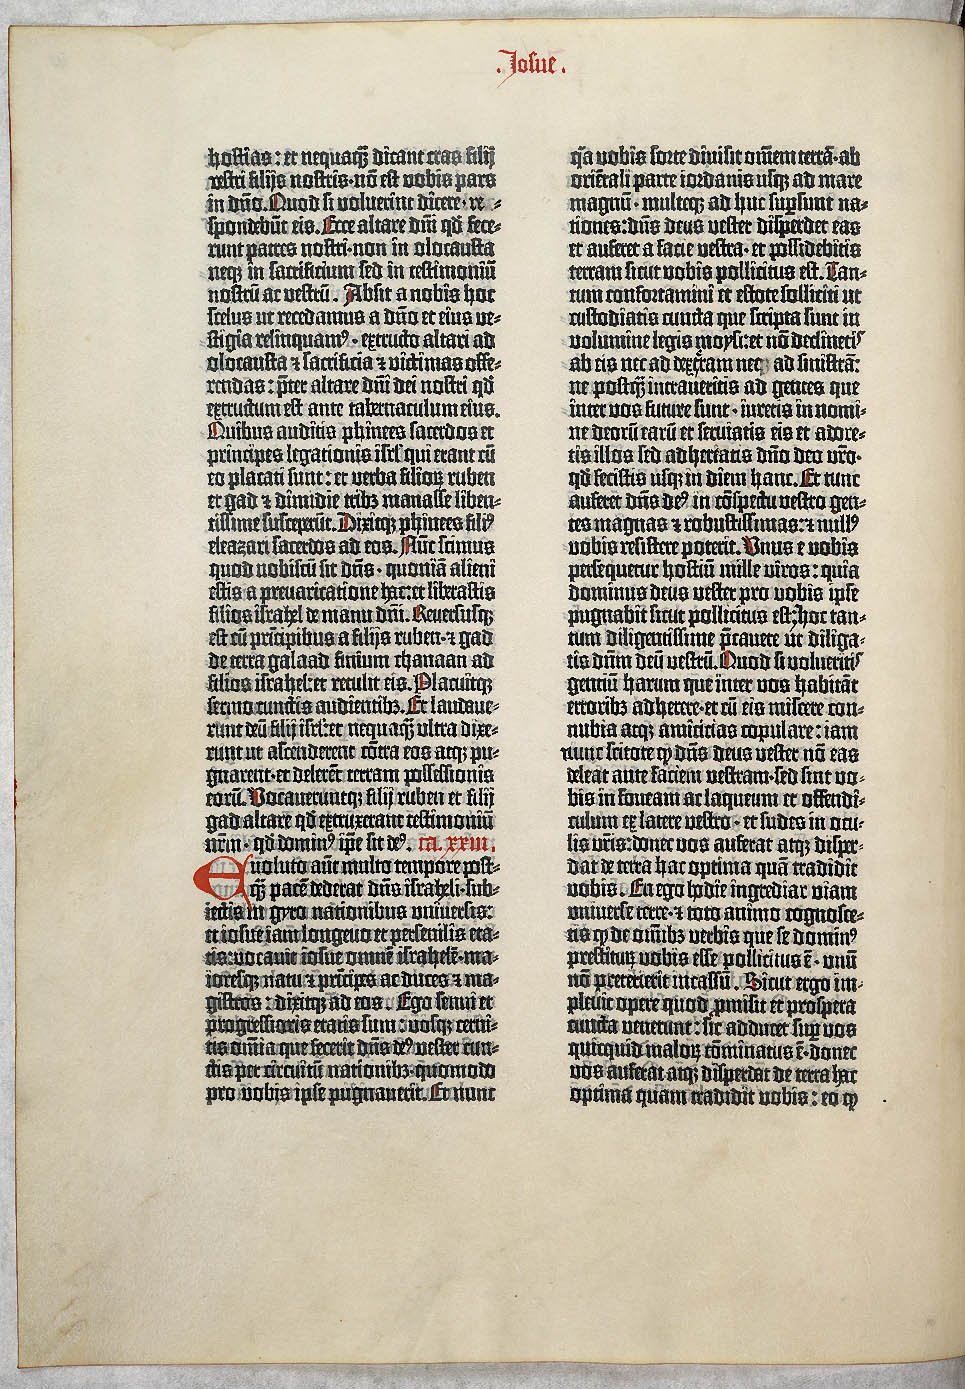 .Josue.
hostias: et nequaqȝ dicant cras filij
vestri filijs nostris·nō est vobis pars
in dño. Quod si voluerint dicere·re-
spondebūt eis. Ecce altare dñi qd fece-
runt patres nostri·non in olocausta
neqȝ in sacrificium sed in testimoniū
nostrū ac vestrū. Absit a nobis hoc
scelus ut recedamus a dño et eius ve-
stigia relinquamꝰ·extructo altari ad
olocausta ⁊ sacrificia ⁊ victimas offe-
rendas: pter altare dñi dei nostri qd
extructum est ante tabernaculum eius.
Quibus auditis phinees sacerdos et
principes legationis isrl' qui erant cū
eo placati sunt: et verba filioꝝ ruben
et gad ⁊ dimidie tribȝ manasse liben-
tissime susceperūt. Dixitqȝ phinees filiꝰ
eleazari sacerdos ad eos. Nūc scimus
quod nobiscū sit dñs·quoniā alieni
estis a prevaricatione hac: et liberastis
filios israhel de manu dñi. Reversusqȝ
est cū principibus a filijs ruben·⁊ gad
de terra galaad finium chanaan ad
filios israhel: et retulit eis. Placuitqȝ
sermo cunctis audientibȝ. Et laudave-
runt deū filij isrl': et nequaqȝ ultra dixe-
runt ut ascenderent cōtra eos atqȝ pu-
gnarent·et delerēt terram possessionis
eorū. Vocaveruntqȝ filij ruben et filij
gad altare qd extruxerant testimoniū
nrm·qd dominꝰ ipe sit deꝰ. ca. xxiii.
Evoluto aūt multo tempore post-
qȝ pacē dederat dñs israheli·sub-
iectis in gyro nationibus universis:
et iosue iam longevo et persenilis eta-
tis: vocavit iosue omnē israhelē·ma-
ioresqȝ natu ⁊ principes ac duces ⁊ ma-
gistros: dixitqȝ ad eos. Ego senui et
progressioris etatis sum: vosqȝ cerni-
tis omnia que fecerit dñs deꝰ vester cun-
ctis per circuitū nationibȝ·quomodo
pro vobis ipse pugnaverit. Et nunc
qa vobis sorte divisit omēm terrā·ab
oriētali parte iordanis usqȝ ad mare
magnū·multeqȝ ad huc supsunt na-
tiones: dñs deus vester disperdet eas
et auferet a facie vestra·et possidebitis
terram sicut vobis pollicitus est. Tan-
tum confortamini et estote solliciti ut
custodiatis cuncta que scripta sunt in
volumine legis moysi: et nō declinetis
ab eis nec ad dextram neqȝ ad sinistrā:
ne postqȝ intraveritis ad gentes que
inter vos future sunt·iuretis in nomi-
ne deorū earū et serviatis eis et adore-
tis illos sed adhereatis dño deo vro·
qd fecistis usqȝ in diem hanc. Et tunc
auferet dñs deꝰ in cōspectu vestro gen-
tes magnas ⁊ robustissimas: ⁊ nullꝰ
vobis resistere poterit. Unus e vobis
persequetur hostiū mille viros: quia
dominus deus vester pro vobis ipse
pugnabit sicut pollicitus est: hoc tan-
tum diligentissime pcavete ut diliga-
tis dñm deū vestrū. Quod si volueritis
gentiū harum que inter vos habitāt
erroribȝ adherere·et cū eis miscere con-
nubia atqȝ amicitias copulare: iam
nunc scitote ꝙ dñs deus vester nō eas
deleat ante faciem vestram·sed sint vo-
bis in foveam ac laqueum et offendi-
culum ex latere vestro·et sudes in ocu-
lis vris: donec vos auferat atqȝ disper-
dat de terra hac optima quā tradidit
vobis. En ego hodie ingrediar viam
universe terre·⁊ toto animo cognosce-
tis ꝙ de omībȝ verbis que se dominꝰ
prestiturȝ vobis esse pollicitus ē·unū
nō preterierit incassū. Sicut ergo im-
plevit opere quod pmisit et prospera
cuncta venerunt: sic adducet sup vos
quicquid maloꝝ cōminatus ē·donec
vos auferat atqȝ disperdat de terra hac
optima quam tradidit vobis: eo ꝙ